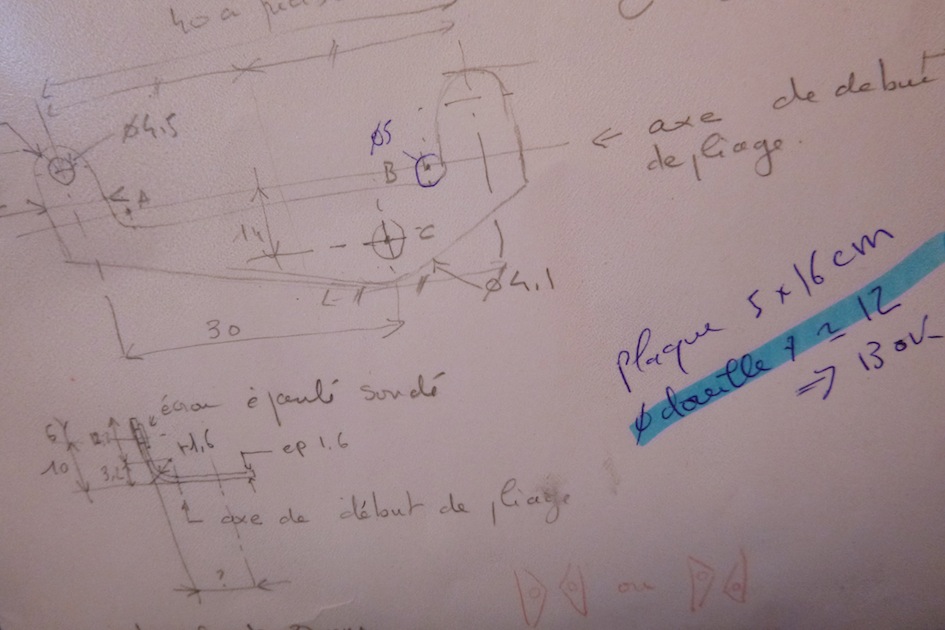 40 a
ø4,5
ø5
A
B
axe de debut
de pliage.
14
C
ø4,1
30
plaque 5 x 16 cm
ø douille + ≃ 12
⇒ 13 ok
écrou épaulé soudé
r1,6
ep 1.6
10
axe de début de pliage
?
ou